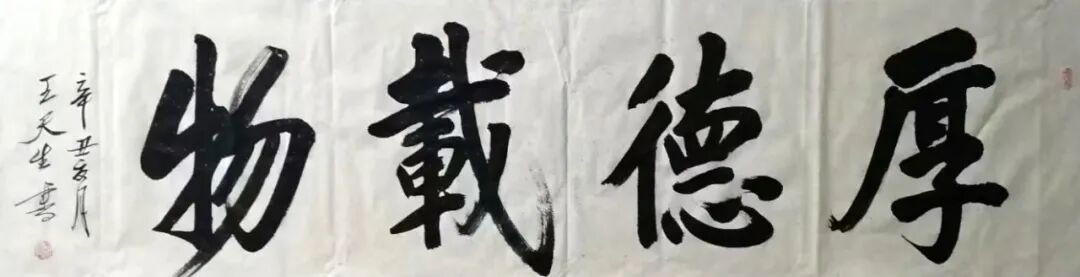 厚德載物
辛丑亥月
王天生書